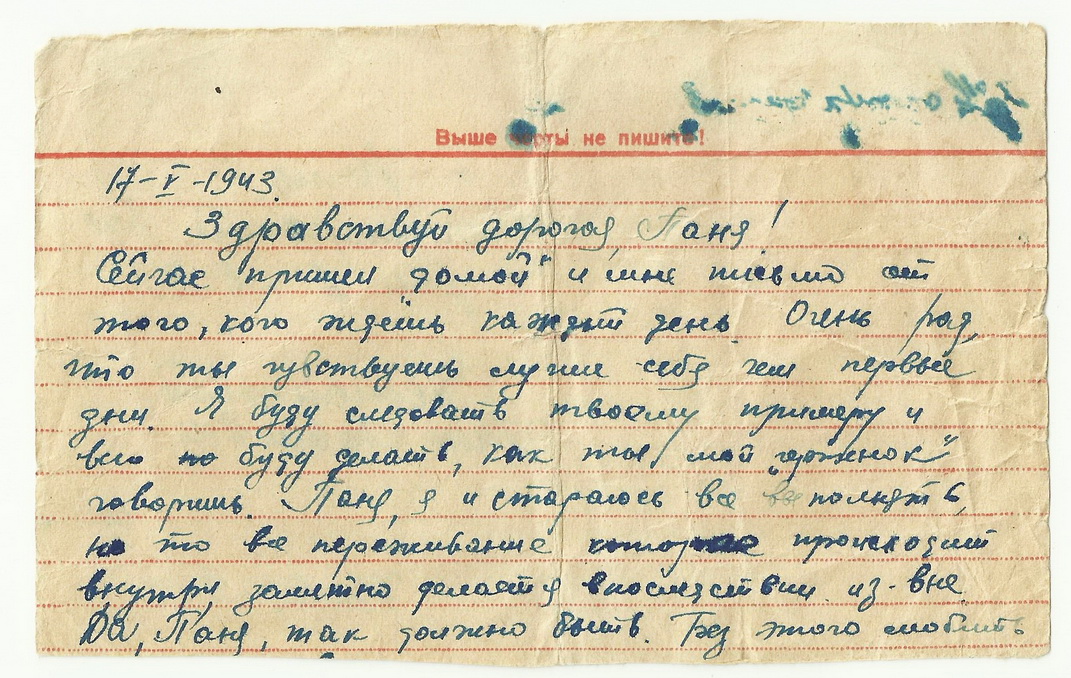 Выше черты не пишите!
17-V-1943.
Здравствуй дорогая Паня!
Сейчас пришел "домой" и мне письмо от
того, кого ждешь каждый день. Очень рад,
что ты чувствуешь лучше себя чем первые
дни. Я буду следовать твоему примеру и
буду делать, как ты, мой "
говоришь. Паня, я и стараюсь все выполнять,
но то все переживание которое происходит
внутри, заметно делается впоследствии из-вне.
Да, Паня, так должно быть. Без этого любить